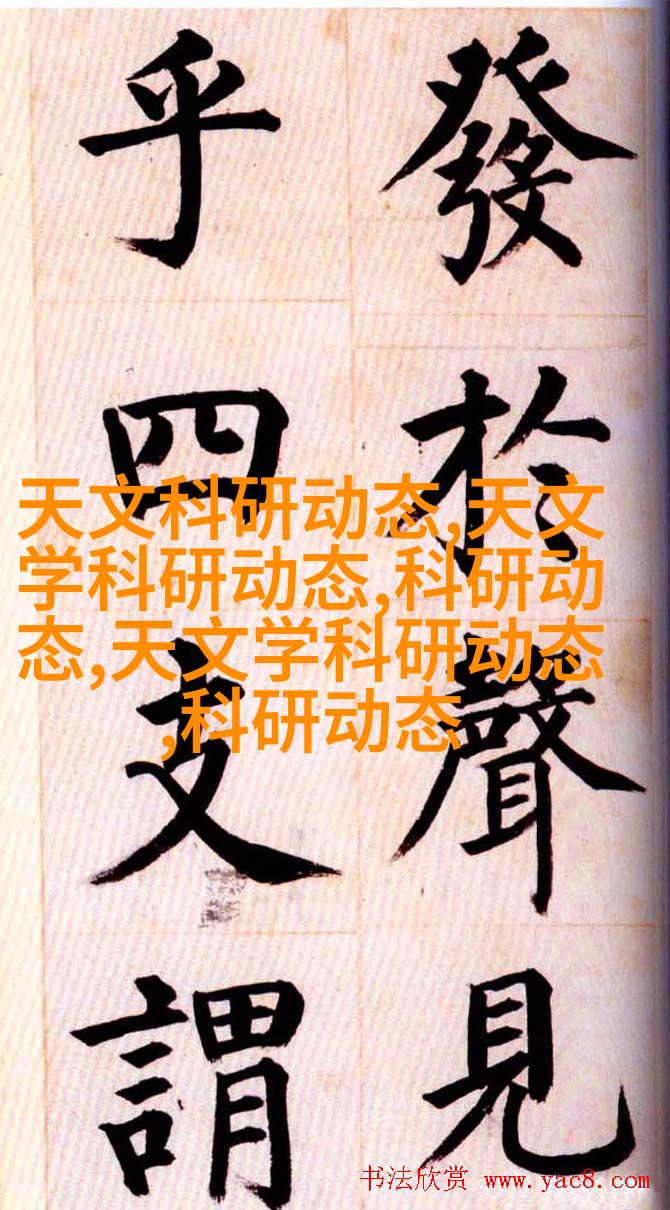 發於聲見
乎四支謂
天文科研动态,天文
学科研动态,科研动
态,天文学科研动态
,科研动态
书法欣赏 www.yac8.com